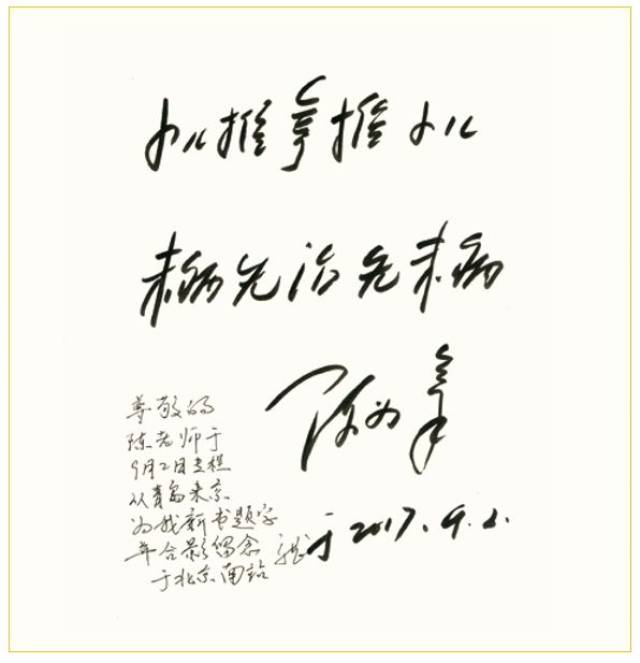 小儿推拿推小儿
未病先治先未病
陈为
于2017.9.2.
尊敬的
陈老师于
9月2日专程
从青岛来京
为我新书题字
并合影留念
于北京南站